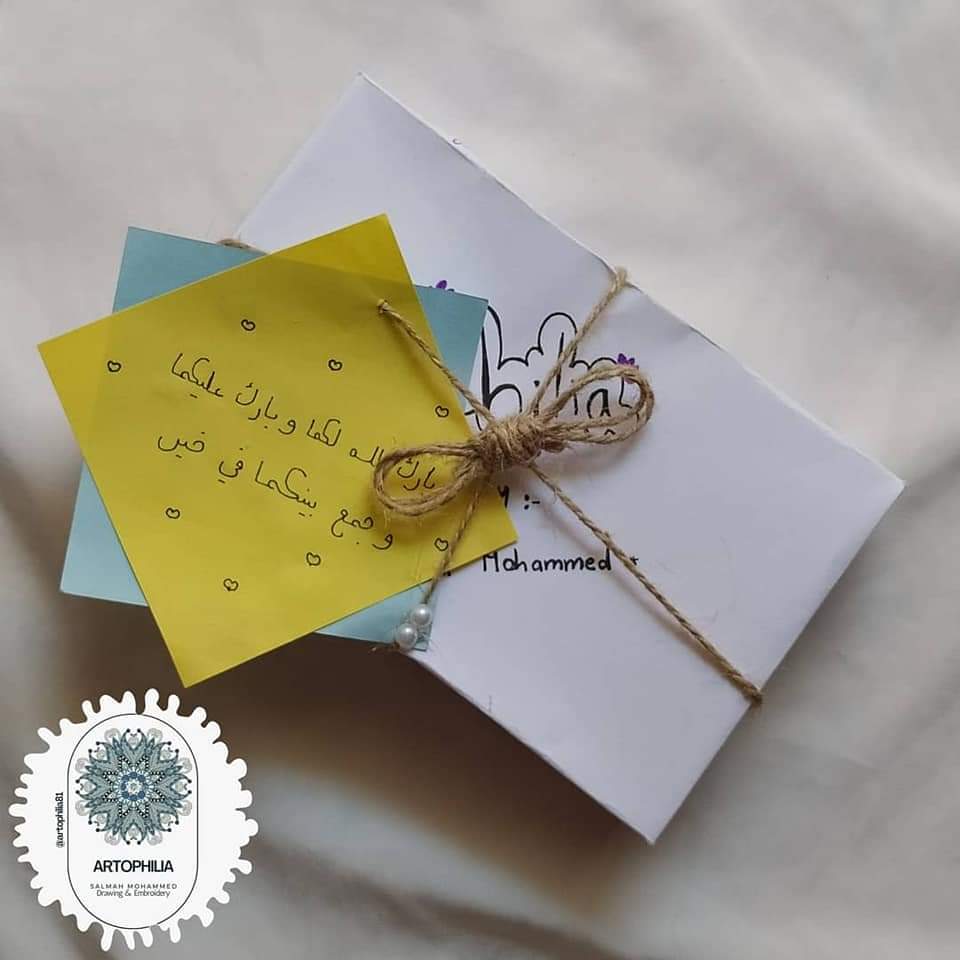 بارك الله لكما وبارك عليكما
وجمع بينكما في خير
Mohammed
@artophilia81
ARTOPHILIA
SALMAH MOHAMMED
Drawing & Embroidery